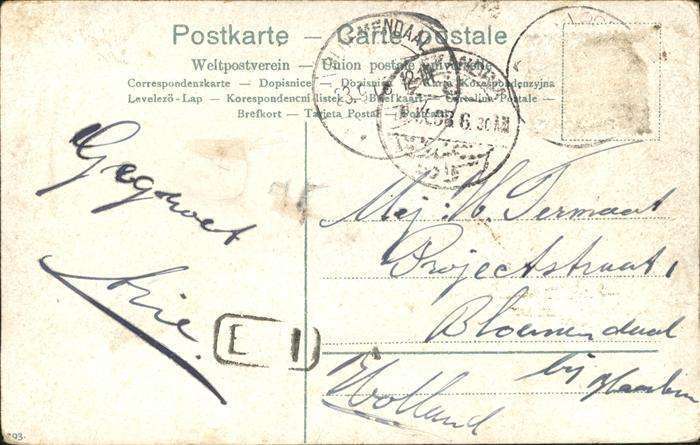 Postkarte — Carte postale
Weltpostverein — Union postale universelle
Correspondenzkarte — Dopisnice — Dopisnica — Karta Korespondenzyjna
Levelező-Lap — Korespondencní lístek — Briefkaart — Cartolina Postale —
Brefkort — Tarjeta Postal — Postcard
Gegroet
Arie.
Mej. W. Termaat
Projectstraat 1
Bloemendaal
bij Haarlem
Holland
293